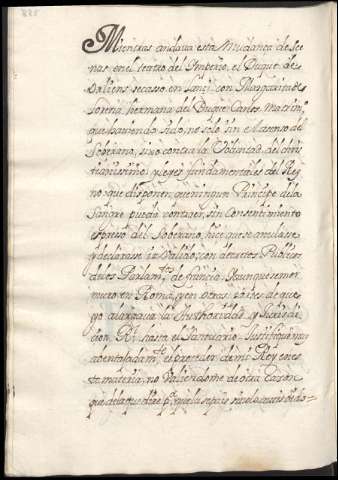 Mientras andaua esta Mudança de Sce
nas en el teatro del Imperio, el Duque de
Orliens se casso en Lanci con Margarita de
Lorena, hermana del Duque Carlos Matrim.º
que hauiendo sido, no solo sin Asenso del
Soberano, sino contra la Voluntad del chris
tianissimo y leyes fundamentales del Rey
no que disponen, que ningun Principe de la
Sangre pueda contraer, sin consentimiento
espreso del Soberano, hice que se anulasse
y declarasse in Valido, con decretos Publicos
de los Parlam.tos de francia. Y aunque se mor
muro en Roma, y en otras partes de que
yo alargaua la Authoridad y Jurisdic
cion Rl. hasta el Santuario. Justifiqué muy
abentajadam.te el proceder de mi Rey en es
ta materia, no Valiendome de otra Razon
que de la que diré p.ª que la sepais sin los